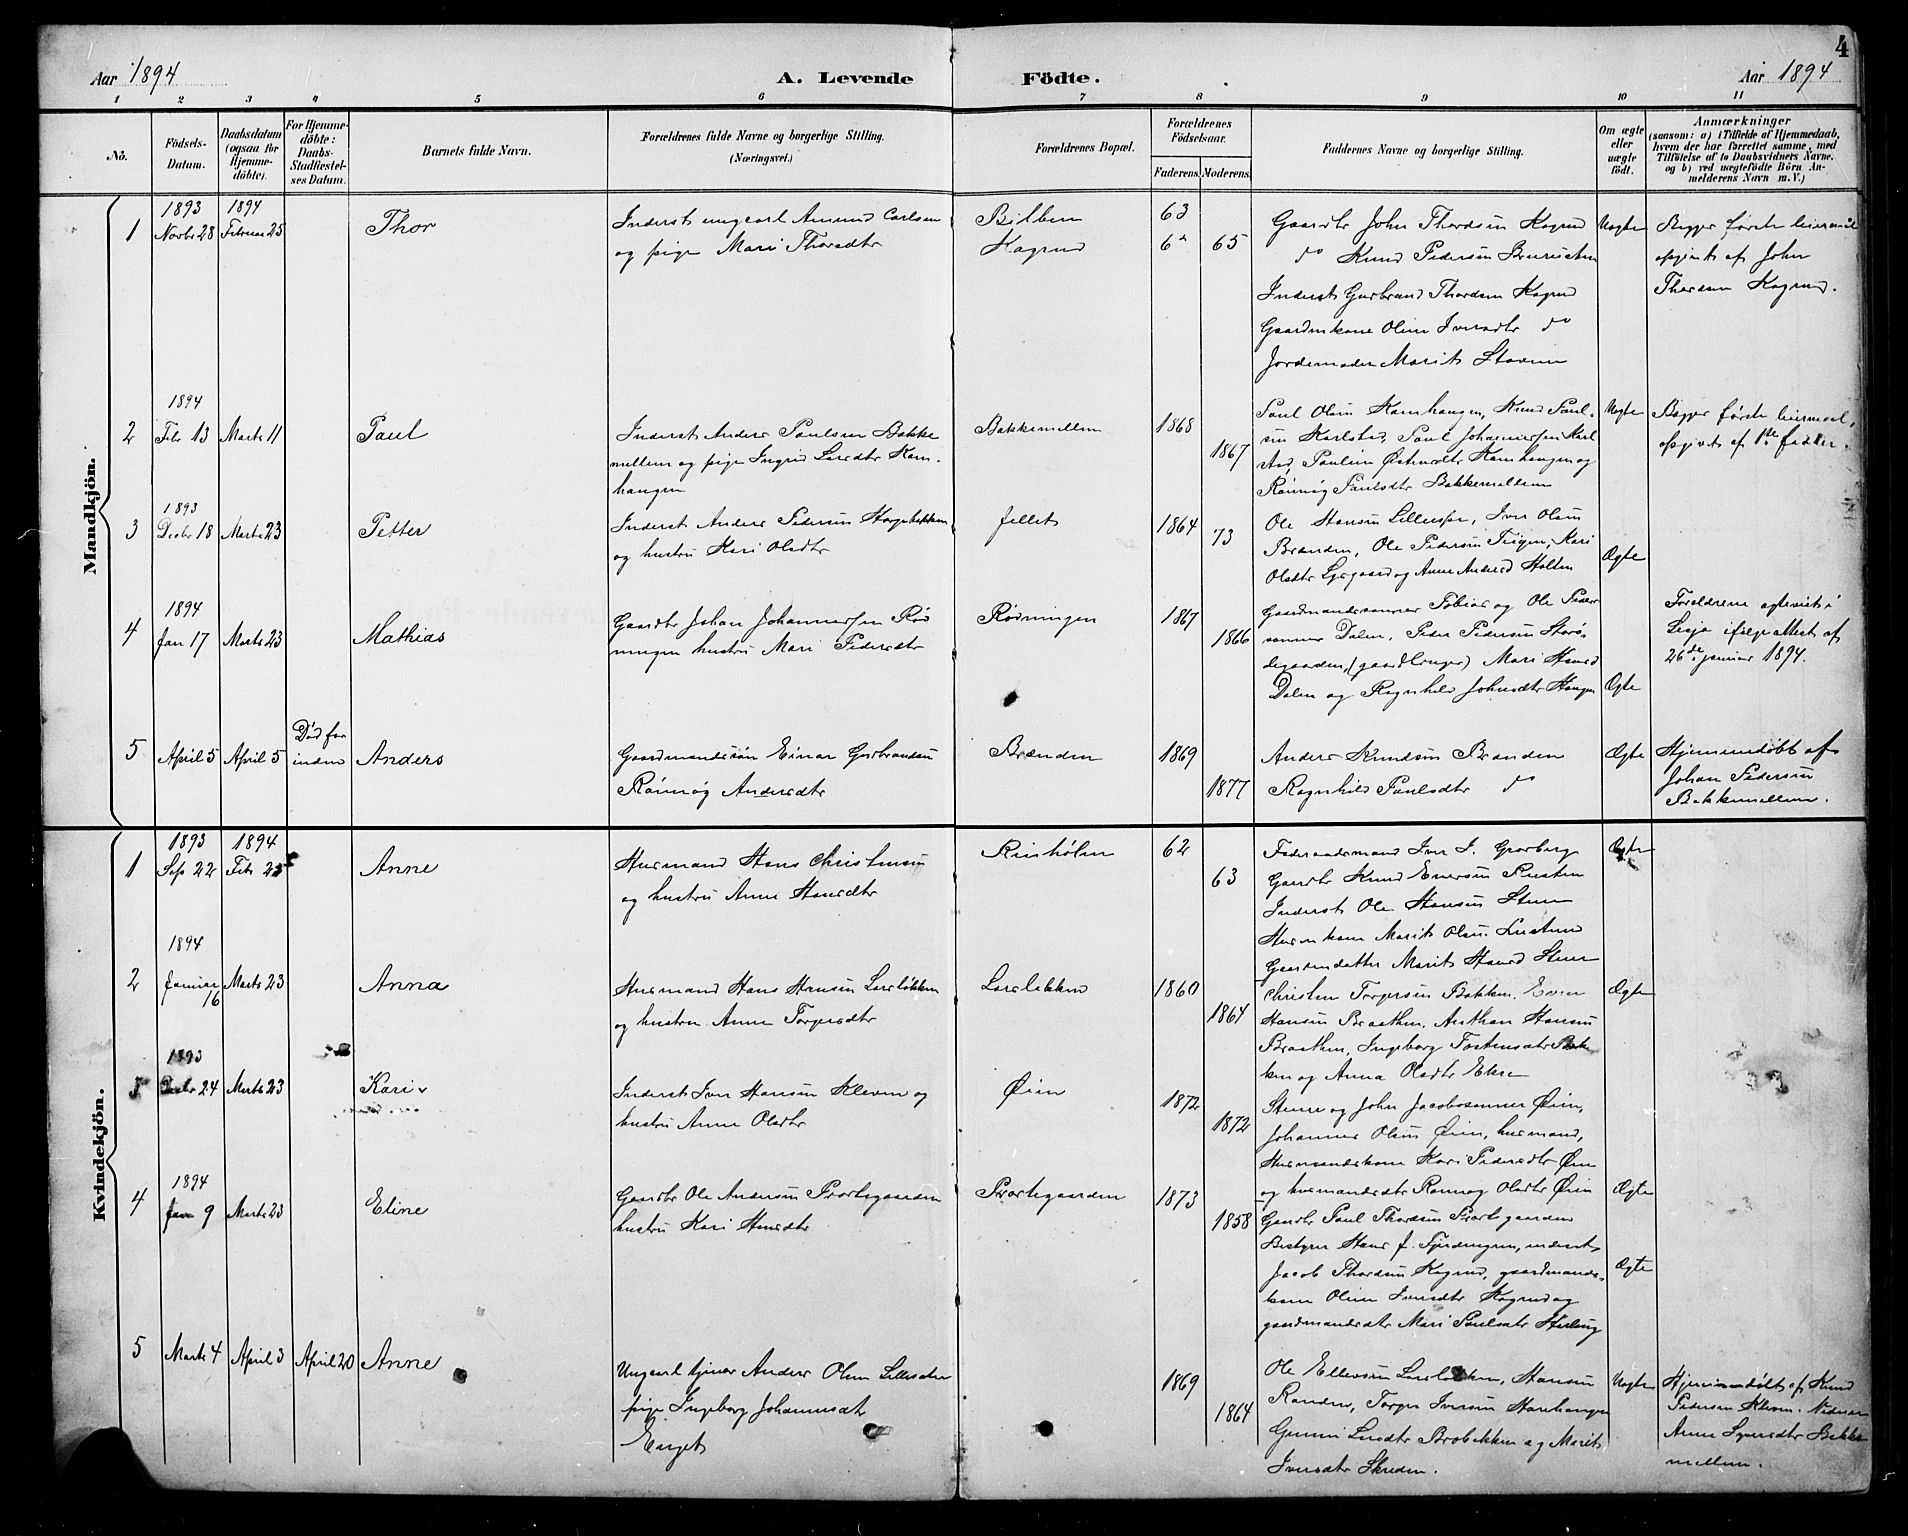 Aar 1894
A. Levende
Födte.
Aar 1894
4
1 2 3 4 5 6 7 8 9 10 11
No.
Födsels-
Datum.
Daabsdatum
(ogsaa for
Hjemme-
döbte).
For Hjemme-
döbte:
Daabs-
Stadfæstel-
ses Datum.
Barnets fulde Navn.
Forældrenes fulde Navne og borgerlige Stilling.
(Næringsvei.)
Forældrenes Bopæl.
Forældrenes
Födselsaar.
Faderens.
Moderens.
Faddernes Navne og borgerlige Stilling.
Om ægte
eller
uægte
født.
Anmærkninger
(saasom: a) i Tilfælde af Hjemmedaab,
hvem der har forrettet samme, med
Tilföielse af to Daabsvidners Navne.
og b) ved uægtefödte Börn An-
melderens Navn m. V.)
Mandkjön.
1
1893
Novbr 28
1894
Februar 25
Thor
Inderst ungcarl Amund Carlsen
og pige Mari Thorsdtr
Bilben
Kogrud
63
65
Gaardbr John Thordsen Kogrud
do Knud Pedersen
Inderst Gudbrand Thordsen Kogrud
Gaardmkone Oline Iversdtr do
Jordemoder Marit Stavem
Uegte
Begges første leiermaal
opgivet af John
Thordsen Kogrud.
2
1894
Febr 13
Marts 11
Paul
Inderst Anders Paulsen Bakke
mellem og pige Ingrid Larsdtr Kam-
hangen
Bakkemellem
1868
1867
Paul Olsen Kamhaugen, Knud Paul-
sen Karlstad, Paul Johannessen Karl
stad, Pauline Kamhaugen og
Rönnög Paulsdtr Bakkemellem
Uegte
Begges første leiermaal,
opgivet af 1ste fadder.
3
1893
Decbr 18
Marts 23
Petter
Inderst Anders Pedersen
og hustru Kari Olsdtr
fellet
1864
73
Ole Hansen Lillerspe, Iver Olsen
Brænden, Ole Pedersen Teigen, Kari
Olsdtr Lysgaard og Anne Andersd Holten
Ægte
4
1894
Jan 17
Marts 23
Mathias
Gaardbr Johan Johannessen Rød
ningen hustru Mari Pedersdtr
Rødningen
1867
1866
Gaardmandssønner Tobias og Ole Peder
sønner Dalen, Peder Pedersen Storö-
degaarden, (gaardbruger) Mari Hansd
Dalen og Ragnhild Johnsdtr Haugen
Ægte
Foreldrene egteviet i
Lesja ifølge attest af
26de januar 1894.
5
April 5
April 5
Død for
inden
Anders
Gaardmandssön Einar Gudbrandsen
Rönnög Andersdtr
Brænden
1869
1877
Anders Knudsen Brænden
Ragnhild Paulsdtr do
Ægte
Hjemmedøbt af
Johan Pedersen
Bakkemellem.
Kvindekjön.
1
1893
Sep 22
1894
Febr 25
Anne
Husmand Hans Christensen
og hustru Anne Hansdtr
Rusthölen
62
63
Føderaadsmand Iver I. Grosberg
Gaardbr Knud Enersen Pusten
Inderst Ole Hansen Steen
Husmkone Marit Olsen
Gaardmdatter Marit Hansd Steen
Ægte
2
1894
Januar
16
Marts 23
Anna
Husmand Hans Hansen Larsløkken
og hustru Anne Torgersdtr
Larsløkken
1860
1864
Christen Torgersen Bakken, Even
Hansen Braathen, Anthon Hansen
Braathen, Ingeborg Tostensdtr Bak
ken og Anna Olsdtr Ekre
Ægte
3
1893
Decbr 24
Marts 23
Kari
Inderst Iver Hansen Kleven og
hustru Anne Olsdtr
Øien
1872
1872
Steine og John Jacobssønner Øien,
Johannes Olsen Øien, husmand,
Husmandskone Kari Pedersdtr Øien
og husmandsdtr Rønnog Olsdtr Øien
Ægte
4
1894
Jan 9
Marts 23
Eline
Gaardbr Ole Andersen Prestegaarden
hustru Kari Hansdtr
Prestegaarden
1873
1858
Gaardbr Paul Thordsen Prestgaarden
Bestyrer Hans J. Tyndingen, inderst
Jacob Thordsen Kogrud, gaardmands-
kone Oline Iversdtr Kogrud og
gaardmandsdtr Mari Paulsdtr
Ægte
5
Marts 4
April 3
April 20
Anne
Ungcarl tjener Anders Olsen
pige Ingeborg Johannesdt
Enget
1869
1864
Ole Ellevsen Larsløkken, Hansen
Randen, Torger Iversen Hanhaugen
Gunnil Larsdtr Brobekken og Marit
Iversdtr Skreden.
Uegte
Hjemmedøbt af Knud
Pedersen Kleven. Vidner
Anne Syversdtr Bakke
mellem.